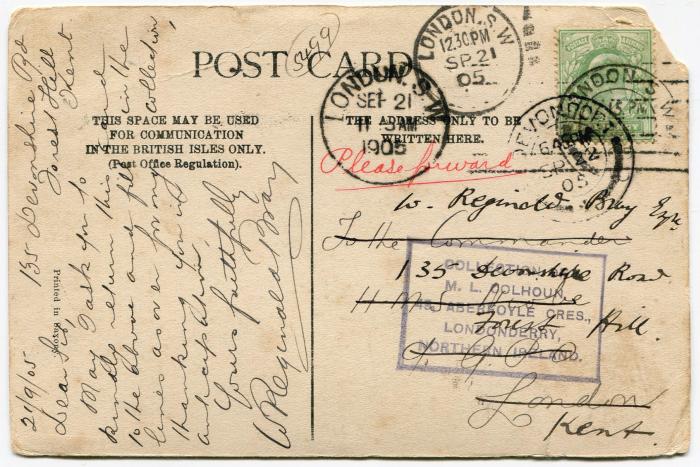 POST CARD
THIS SPACE MAY BE USED
FOR COMMUNICATION
IN THE BRITISH ISLES ONLY.
(Post Office Regulation).
THE ADDRESS ONLY TO BE
WRITTEN HERE.
Printed in Saxony
135 Devonshire Rd
Forest Hill
Kent.
21/9/05
Dear Sir,
May I ask you to
kindly return this card
to the above and fill in the
lines as over for my collection,
thanking you in
anticipation,
Yours faithfully
W Reginald Bray
LONDON, S.W
SET 21
11.15AM
1905
LONDON, S.W
12.30PM
SP 21
05
LONDON, S.W
.15 PM
DEVONPORT
SP
05
Please forward
W. Reginald Bray Esq.
To the Commander
135 Devonshire Road
H.M.S.
Forest Hill.
G.P.O
London
Kent.
COLLECTION
M. L. COLHOUN
ABERFOYLE CRES.,
LONDONDERRY,
NORTHERN IRELAND.